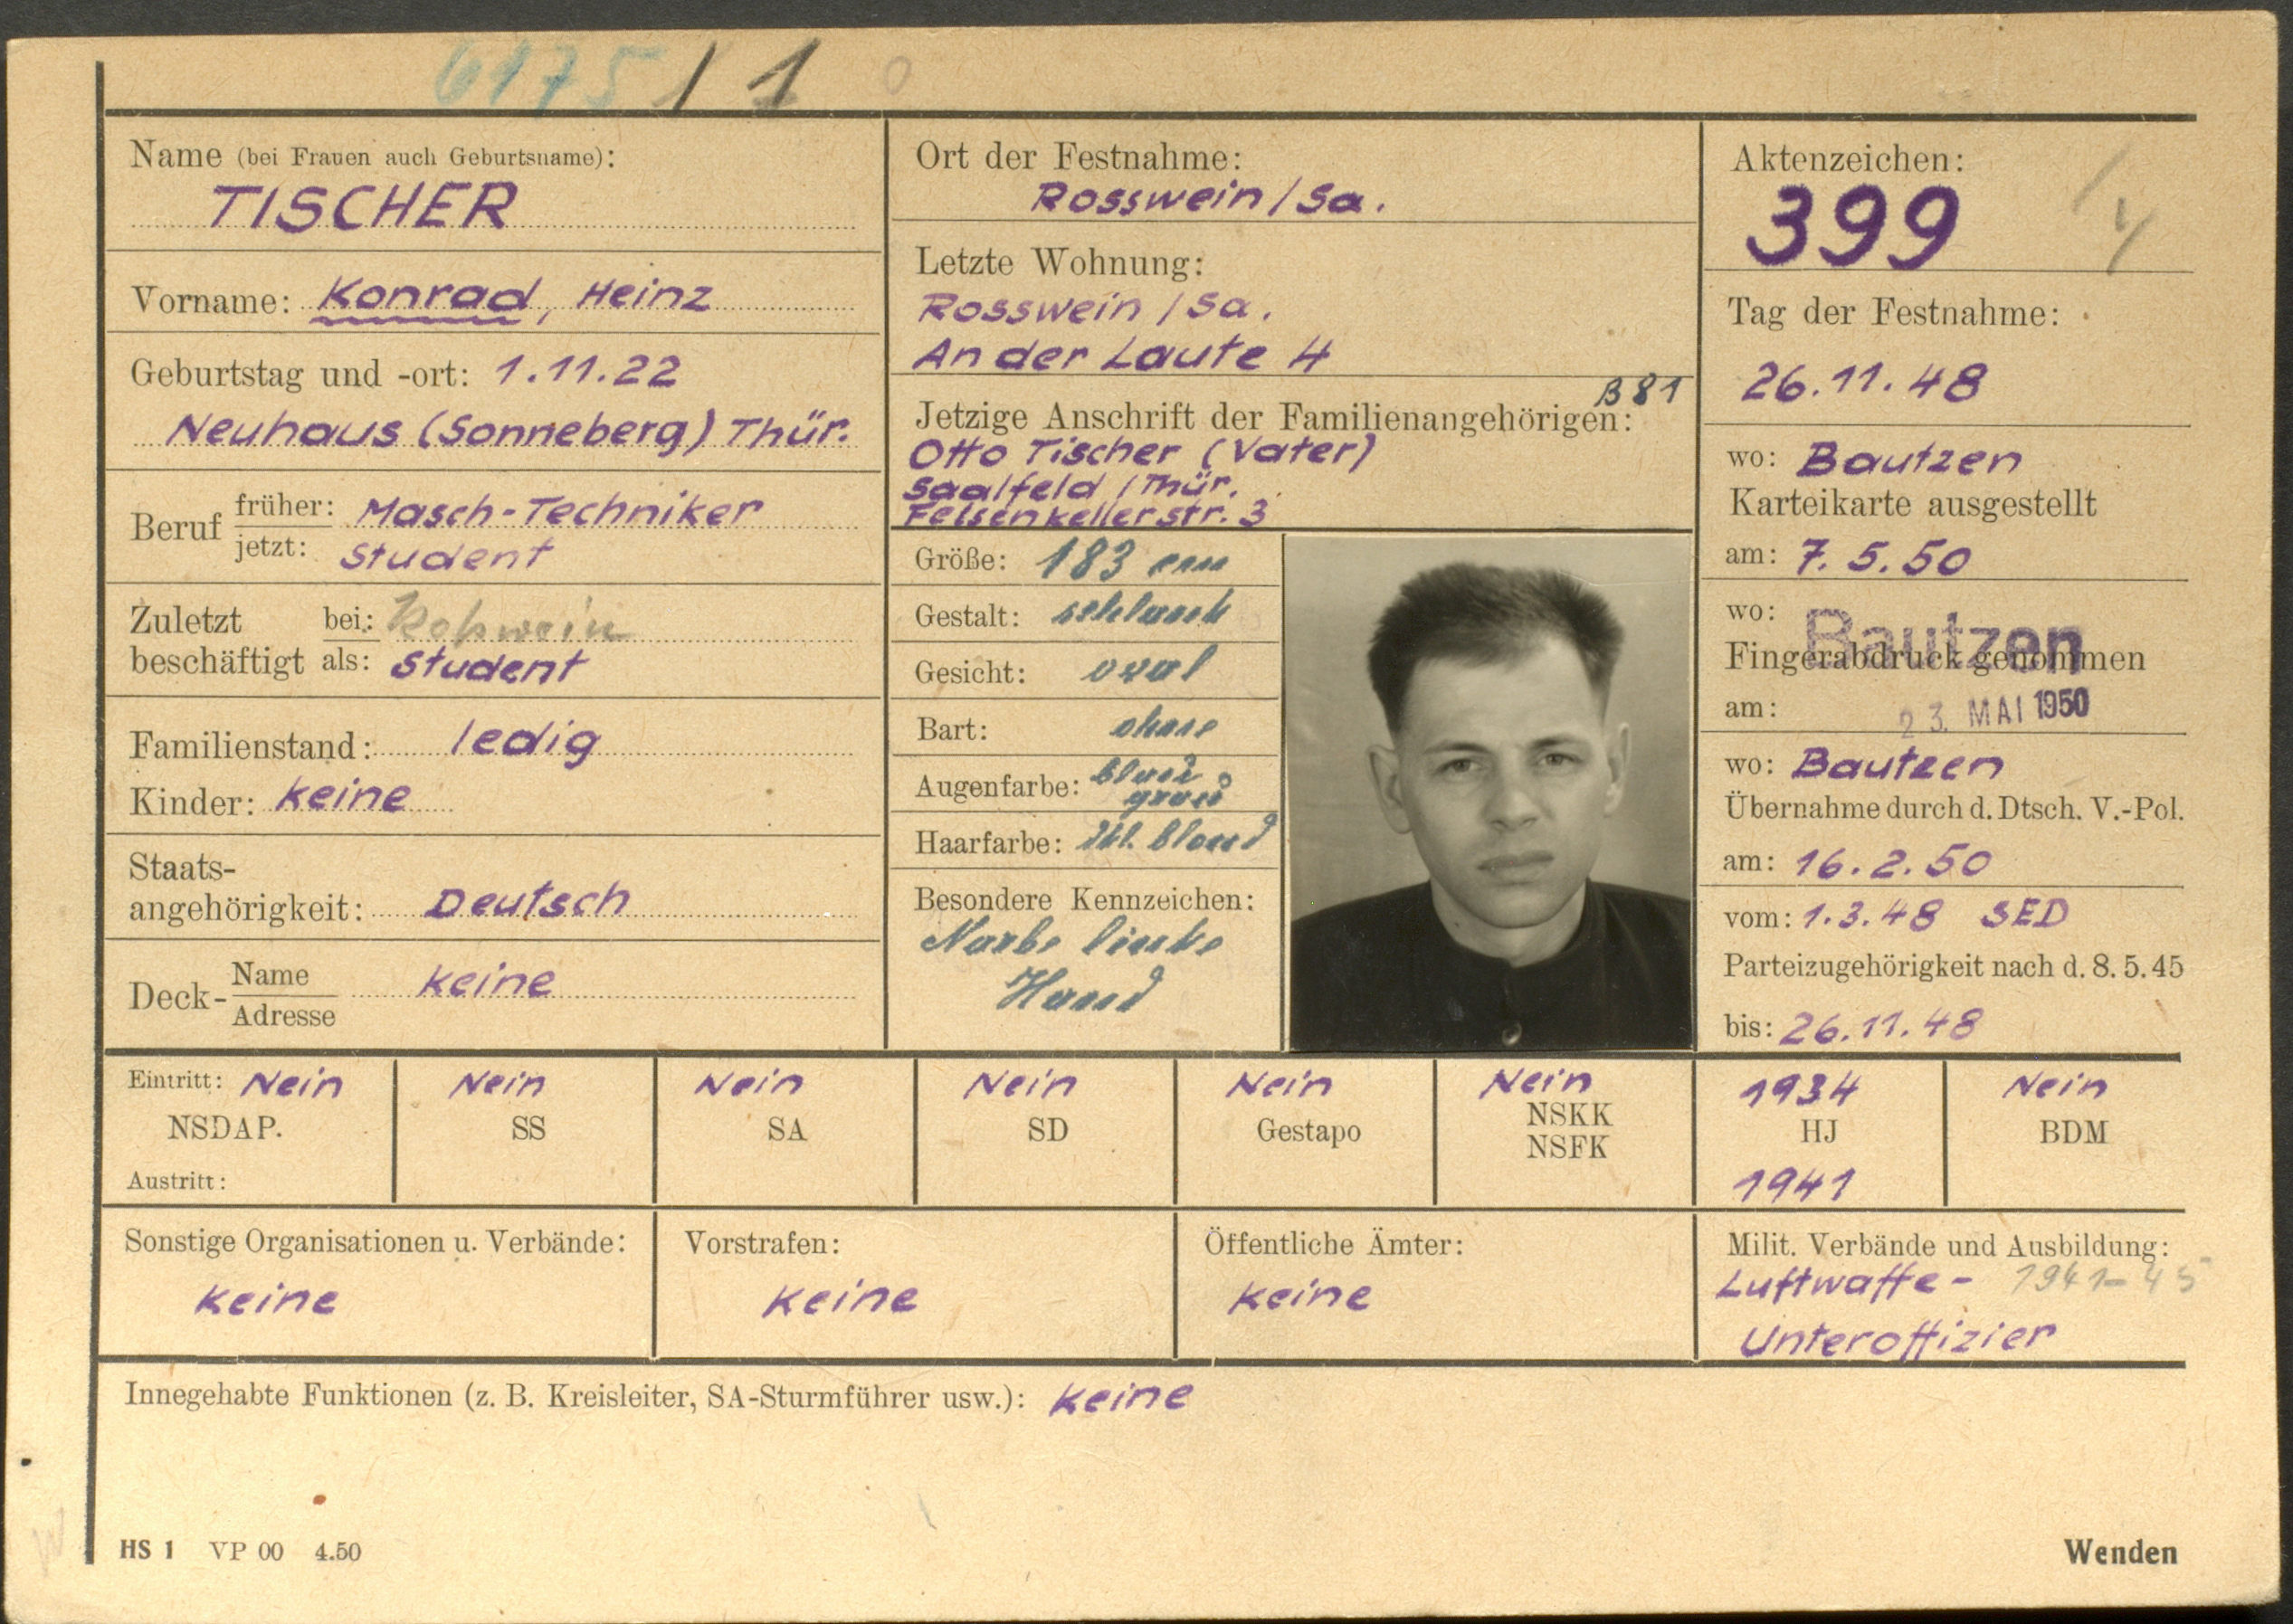 6175 / 1
Name (bei Frauen auch Geburtsname):
TISCHER
Vorname: Konrad, Heinz
Geburtstag und -ort: 1.11.22
Neuhaus (Sonneberg) Thür.
Beruf früher: Masch-Techniker
jetzt: Student
Zuletzt beschäftigt bei: Roßwein
als: Student
Familienstand: ledig
Kinder: keine
Staats-
angehörigkeit: Deutsch
Deck- Name keine
Adresse
Ort der Festnahme:
Rosswein / Sa.
Letzte Wohnung:
Rosswein / Sa.
An der Laute 4
B 81
Jetzige Anschrift der Familienangehörigen:
Otto Tischer (Vater)
Saalfeld / Thür.
Felsenkellerstr. 3
Größe: 183 cm
Gestalt: schlank
Gesicht: oval
Bart: ohne
Augenfarbe: blau
grau
Haarfarbe: dkl. blond
Besondere Kennzeichen:
Narbe linke
Hand
Aktenzeichen:
399
Tag der Festnahme:
26.11.48
wo: Bautzen
Karteikarte ausgestellt
am: 7.5.50
wo: Bautzen
Fingerabdruck genommen
am: 23. MAI 1950
wo: Bautzen
Übernahme durch d. Dtsch. V.-Pol.
am: 16.2.50
vom: 1.3.48 SED
Parteizugehörigkeit nach d. 8. 5. 45
bis: 26.11.48
Eintritt: Nein
NSDAP.
Austritt:
Nein
SS
Nein
SA
Nein
SD
Nein
Gestapo
Nein
NSKK
NSFK
1934
HJ
1941
Nein
BDM
Sonstige Organisationen u. Verbände:
keine
Vorstrafen:
keine
Öffentliche Ämter:
keine
Milit. Verbände und Ausbildung:
Luftwaffe - 1941-45
Unteroffizier
Innegehabte Funktionen (z. B. Kreisleiter, SA-Sturmführer usw.): keine
HS 1 VP 00 4.50
Wenden